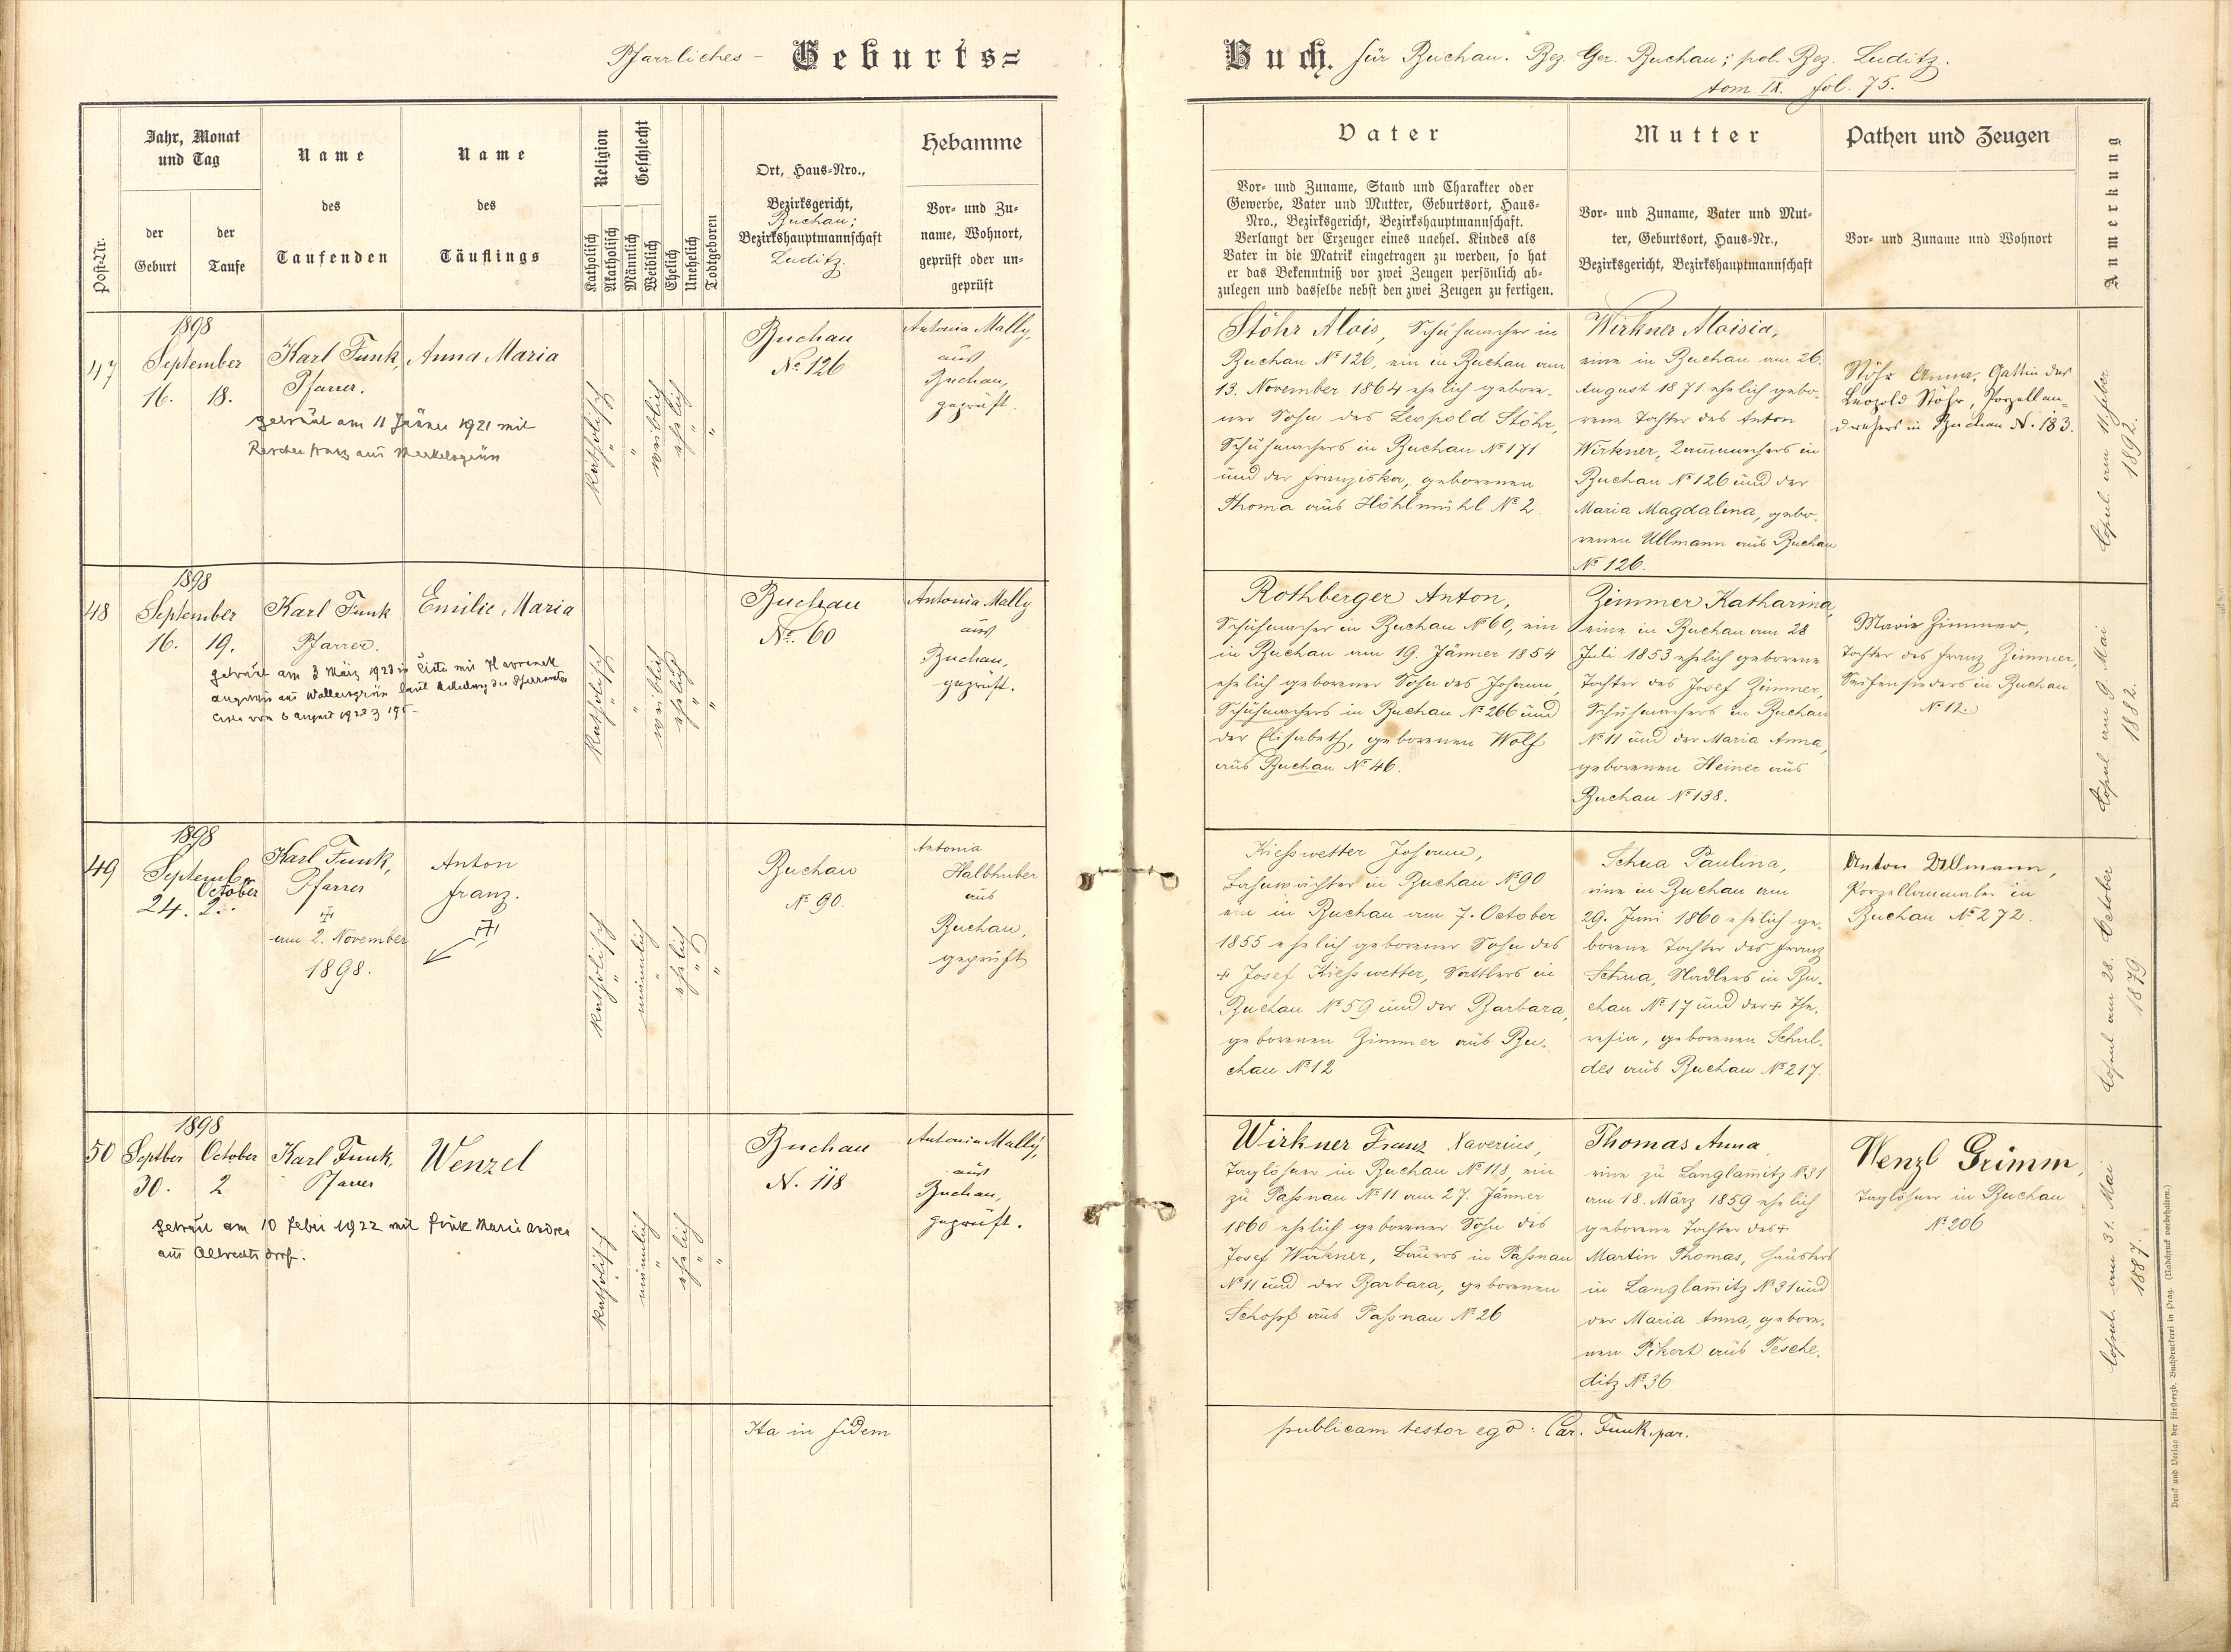 Pfarrliches - Geburts=
Buch. für Buchau. Bez. Ger. Buchau; pol. Bez. Luditz.
tom IX. fol. 75.
Post-Nr.
Jahr, Monat
und Tag
der
Geburt
der
Taufe
Name
des
Taufenden
Name
des
Täuflings
Religion
Katholisch
Akatholisch
Geschlecht
Männlich
Weiblich
Ehelich
Unehelich
Todtgeboren
Ort, Haus-Nro.,
Bezirksgericht,
Buchau;
Bezirkshauptmannschaft
Luditz.
Hebamme
Vor- und Zu-
name, Wohnort,
geprüft oder un-
geprüft
Vater
Vor- und Zuname, Stand und Charakter oder
Gewerbe, Vater und Mutter, Geburtsort, Haus-
Nro., Bezirksgericht, Bezirkshauptmannschaft.
Verlangt der Erzeuger eines unehel. Kindes als
Vater in die Matrik eingetragen zu werden, so hat
er das Bekenntniß vor zwei Zeugen persönlich ab-
zulegen und dasselbe nebst den zwei Zeugen zu fertigen.
Mutter
Vor- und Zuname, Vater und Mut-
ter, Geburtsort, Haus-Nr.,
Bezirksgericht, Bezirkshauptmannschaft
Pathen und Zeugen
Vor- und Zuname und Wohnort
Anmerkung
47
1898
September
16. 18.
Karl Funk,
Pfarrer.
Anna Maria
getraut am 11 Jänner 1921 mit
aus
katholisch
"
"
weiblich
ehelich
"
"
Buchau
No. 126
Antonia Mally,
aus
Buchau,
geprüft.
Stöhr Alois, Schuhmacher in
Buchau No 126, ein in Buchau am
13. November 1864 ehelich gebore-
ner Sohn des Leopold Stöhr,
Schuhmachers in Buchau No 171
und der Franziska, geborenen
Thoma aus Höhlmühl No 2.
Wirkner Aloisia,
eine in Buchau am 26.
August 1871 ehelich gebo-
rene Tochter des Anton
Wirkner, in
Buchau No 126 und der
Maria Magdalena, gebo-
renen Ullmann aus Buchau
No 126.
Stöhr Anna, Gattin des
Leopold Stöhr, Porzellan-
drehers in Buchau N. 183.
Copul. am 11.
1892.
48
1898
September
16. 19.
Karl Funk
Pfarrer.
Emilie, Maria
getraut am 3 März 1923 in mit Havranek
aus laut des Pfarramtes
vom 6 August 1923
katholisch
"
"
weiblich
ehelich
"
"
Buchau
No. 60
Antonia Mally
aus
Buchau,
geprüft.
Rothberger Anton,
Schuhmacher in Buchau No 60, ein
in Buchau am 19. Jänner 1854
ehelich geborener Sohn des Johann,
Schuhmachers in Buchau No 266 und
der Elisabeth, geborenen Wolf
aus Buchau No 46.
Zimmer Katharina,
eine in Buchau am 28
Juli 1853 ehelich geborene
Tochter des Josef Zimmer,
Schuhmachers in Buchau
No 11 und der Maria Anna,
geborenen Heiner aus
Buchau No 138.
Marie Zimmer,
Tochter des Franz Zimmer,
Seifensieders in Buchau
No 12.
Copul. am 9. Mai
1882.
49
1898
September October
24. 2.
Karl Funk,
Pfarrer
am 2. November
1898.
Anton
Franz.
katholisch
"
männlich
"
ehelich
"
"
Buchau
No 90.
Antonia
Halbhuber
aus
Buchau,
geprüft
Kießwetter Johann,
Bahnwächter in Buchau No 90
ein in Buchau am 7. October
1855 ehelich geborener Sohn des
+ Josef Kießwetter, Sattlers in
Buchau No 59 und der Barbara,
geborenen Zimmer aus Bu-
chau No 12
Schua Paulina,
eine in Buchau am
29. Juni 1860 ehelich ge-
borene Tochter des Franz
Schua, Nadlers in Bu-
chau No 17 und der + The-
resia, geborenen Schul-
des aus Buchau No 217.
Anton Ullmann,
Porzellanmaler in
Buchau No 272.
Copul. am 28. October
1879
50
1898
Septber October
30. 2
Karl Funk,
Pfarrer
Wenzel
getraut am 10 Feber 1922 mit Fink Marie
aus Albrechtsdorf.
katholisch
"
männlich
"
ehelich
"
"
Buchau
N. 118
Antonia Mally,
aus
Buchau,
geprüft.
Wirkner Franz Xaverius,
Taglöhner in Buchau No 118, ein
zu Paßnau No 11 am 27. Jänner
1860 ehelich geborener Sohn des
Josef Wirkner, Bauers in Paßnau
No 11 und der Barbara, geborenen
Schopf aus Paßnau No 26
Thomas Anna,
eine zu Langlamitz No 31
am 18. März 1859 ehelich
geborene Tochter des +
Martin Thomas, Häuslers
in Langlamitz No 31 und
der Maria Anna, gebore-
nen Pikert aus Tesche-
ditz No 36
Wenzl Grimm,
Taglöhner in Buchau
No 206
Copul. am 31. Mai
1887.
Ita in fidem
publicam testor ego: Car. Funk, par.
Druck und Verlag der fürsterzb. Buchdruckerei in Prag. (Nachdruck vorbehalten.)